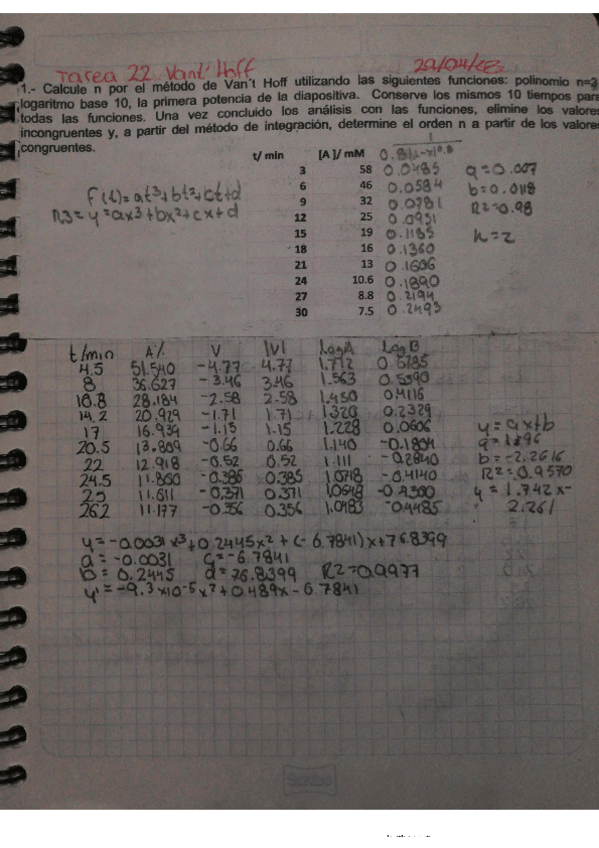 Tarea 22 Vant' Hoff 20/04/23
1.- Calcule n por el método de Van't Hoff utilizando las siguientes funciones: polinomio n=3
logaritmo base 10, la primera potencia de la diapositiva. Conserve los mismos 10 tiempos para
todas las funciones. Una vez concluido los análisis con las funciones, elimine los valores
incongruentes y, a partir del método de integración, determine el orden n a partir de los valores
congruentes.
t/ min [A]/ mM
3 58 0.0485 a=0.007
6 46 0.0584 b=0.0118
9 32 0.0781 R2=0.98
12 25 0.0951
15 19 0.1185 n=2
18 16 0.1360
21 13 0.1606
24 10.6 0.1890
27 8.8 0.2194
30 7.5 0.2493
F(t)=at³+bt²+ct+d
R3=y=ax3+bx2+cx+d
t/min A% V |V| LogA LogB
4.5 51.540 -4.77 4.77 1.712 0.6785
8 36.627 -3.46 3.46 1.563 0.5390
10.8 28.184 -2.58 2.58 1.450 0.4116
14.2 20.929 -1.71 1.71 1.320 0.2329
17 16.939 -1.15 1.15 1.228 0.0606
20.5 13.809 -0.66 0.66 1.140 -0.1804
22 12.918 -0.52 0.52 1.111 -0.2840
24.5 -0.385 0.385 -0.4140
25 11.611 -0.371 0.371
26.2 11.177 -0.356 0.356 1.0483 -0.4485
y=ax+b
b=-2.2616
R2=0.9570
y=1.742x-
2.261
y=-0.0031x³+0.2445x²+(-6.7841)x+76.8399
a=-0.0031 c=-6.7841
b=0.2445 d=76.8399 R2=0.9977
y'=-9.3x10-5x²+0.489x-6.7841